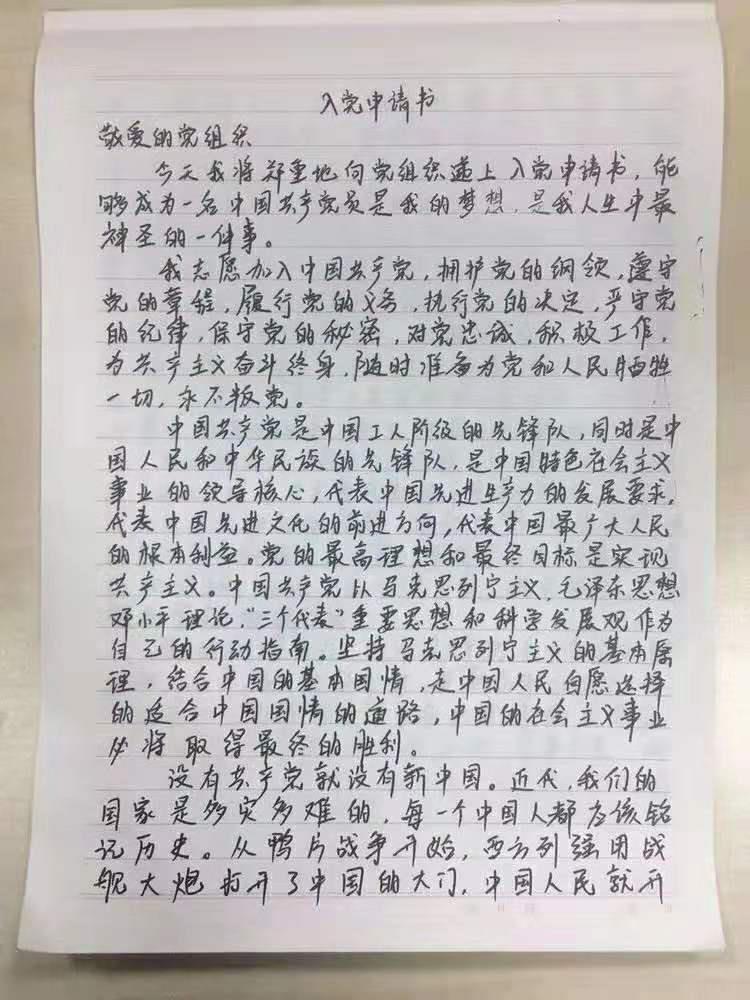 入党申请书
敬爱的党组织
今天我将郑重地向党组织递上入党申请书，能
够成为一名中国共产党员是我的梦想，是我人生中最
神圣的一件事。
我志愿加入中国共产党，拥护党的纲领，遵守
党的章程，履行党的义务，执行党的决定，严守党
的纪律，保守党的秘密，对党忠诚，积极工作，
为共产主义奋斗终身，随时准备为党和人民牺牲
一切，永不叛党。
中国共产党是中国工人阶级的先锋队，同时是中
国人民和中华民族的先锋队，是中国特色社会主义
事业的领导核心，代表中国先进生产力的发展要求，
代表中国先进文化的前进方向，代表中国最广大人民
的根本利益。党的最高理想和最终目标是实现
共产主义。中国共产党以马克思列宁主义、毛泽东思想
邓小平理论，“三个代表”重要思想和科学发展观作为
自己的行动指南。坚持马克思列宁主义的基本原
理，结合中国的基本国情，走中国人民自愿选择
的适合中国国情的道路，中国的社会主义事业
必将取得最终的胜利。
没有共产党就没有新中国。近代，我们的
国家是多灾多难的，每一个中国人都应该铭
记历史。从鸭片战争开始，西方列强用战
舰大炮打开了中国的大门，中国人民就开